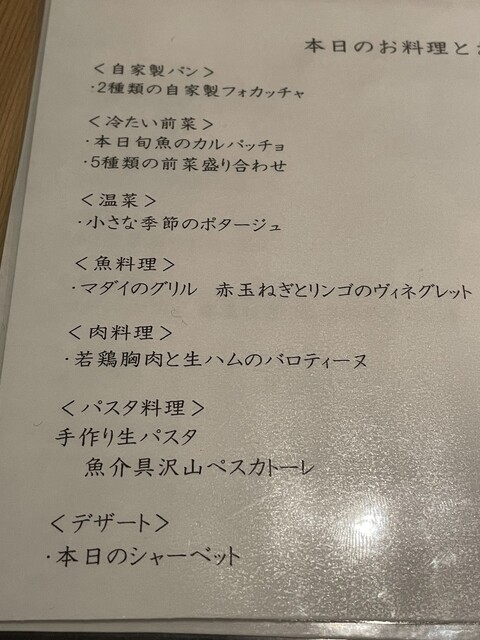 本日のお料理と
＜自家製パン＞
・2種類の自家製フォカッチャ
＜冷たい前菜＞
・本日旬魚のカルパッチョ
・5種類の前菜盛り合わせ
＜温菜＞
・小さな季節のポタージュ
＜魚料理＞
・マダイのグリル　赤玉ねぎとリンゴのヴィネグレット
＜肉料理＞
・若鶏胸肉と生ハムのバロティーヌ
＜パスタ料理＞
手作り生パスタ
魚介具沢山ペスカトーレ
＜デザート＞
・本日のシャーベット